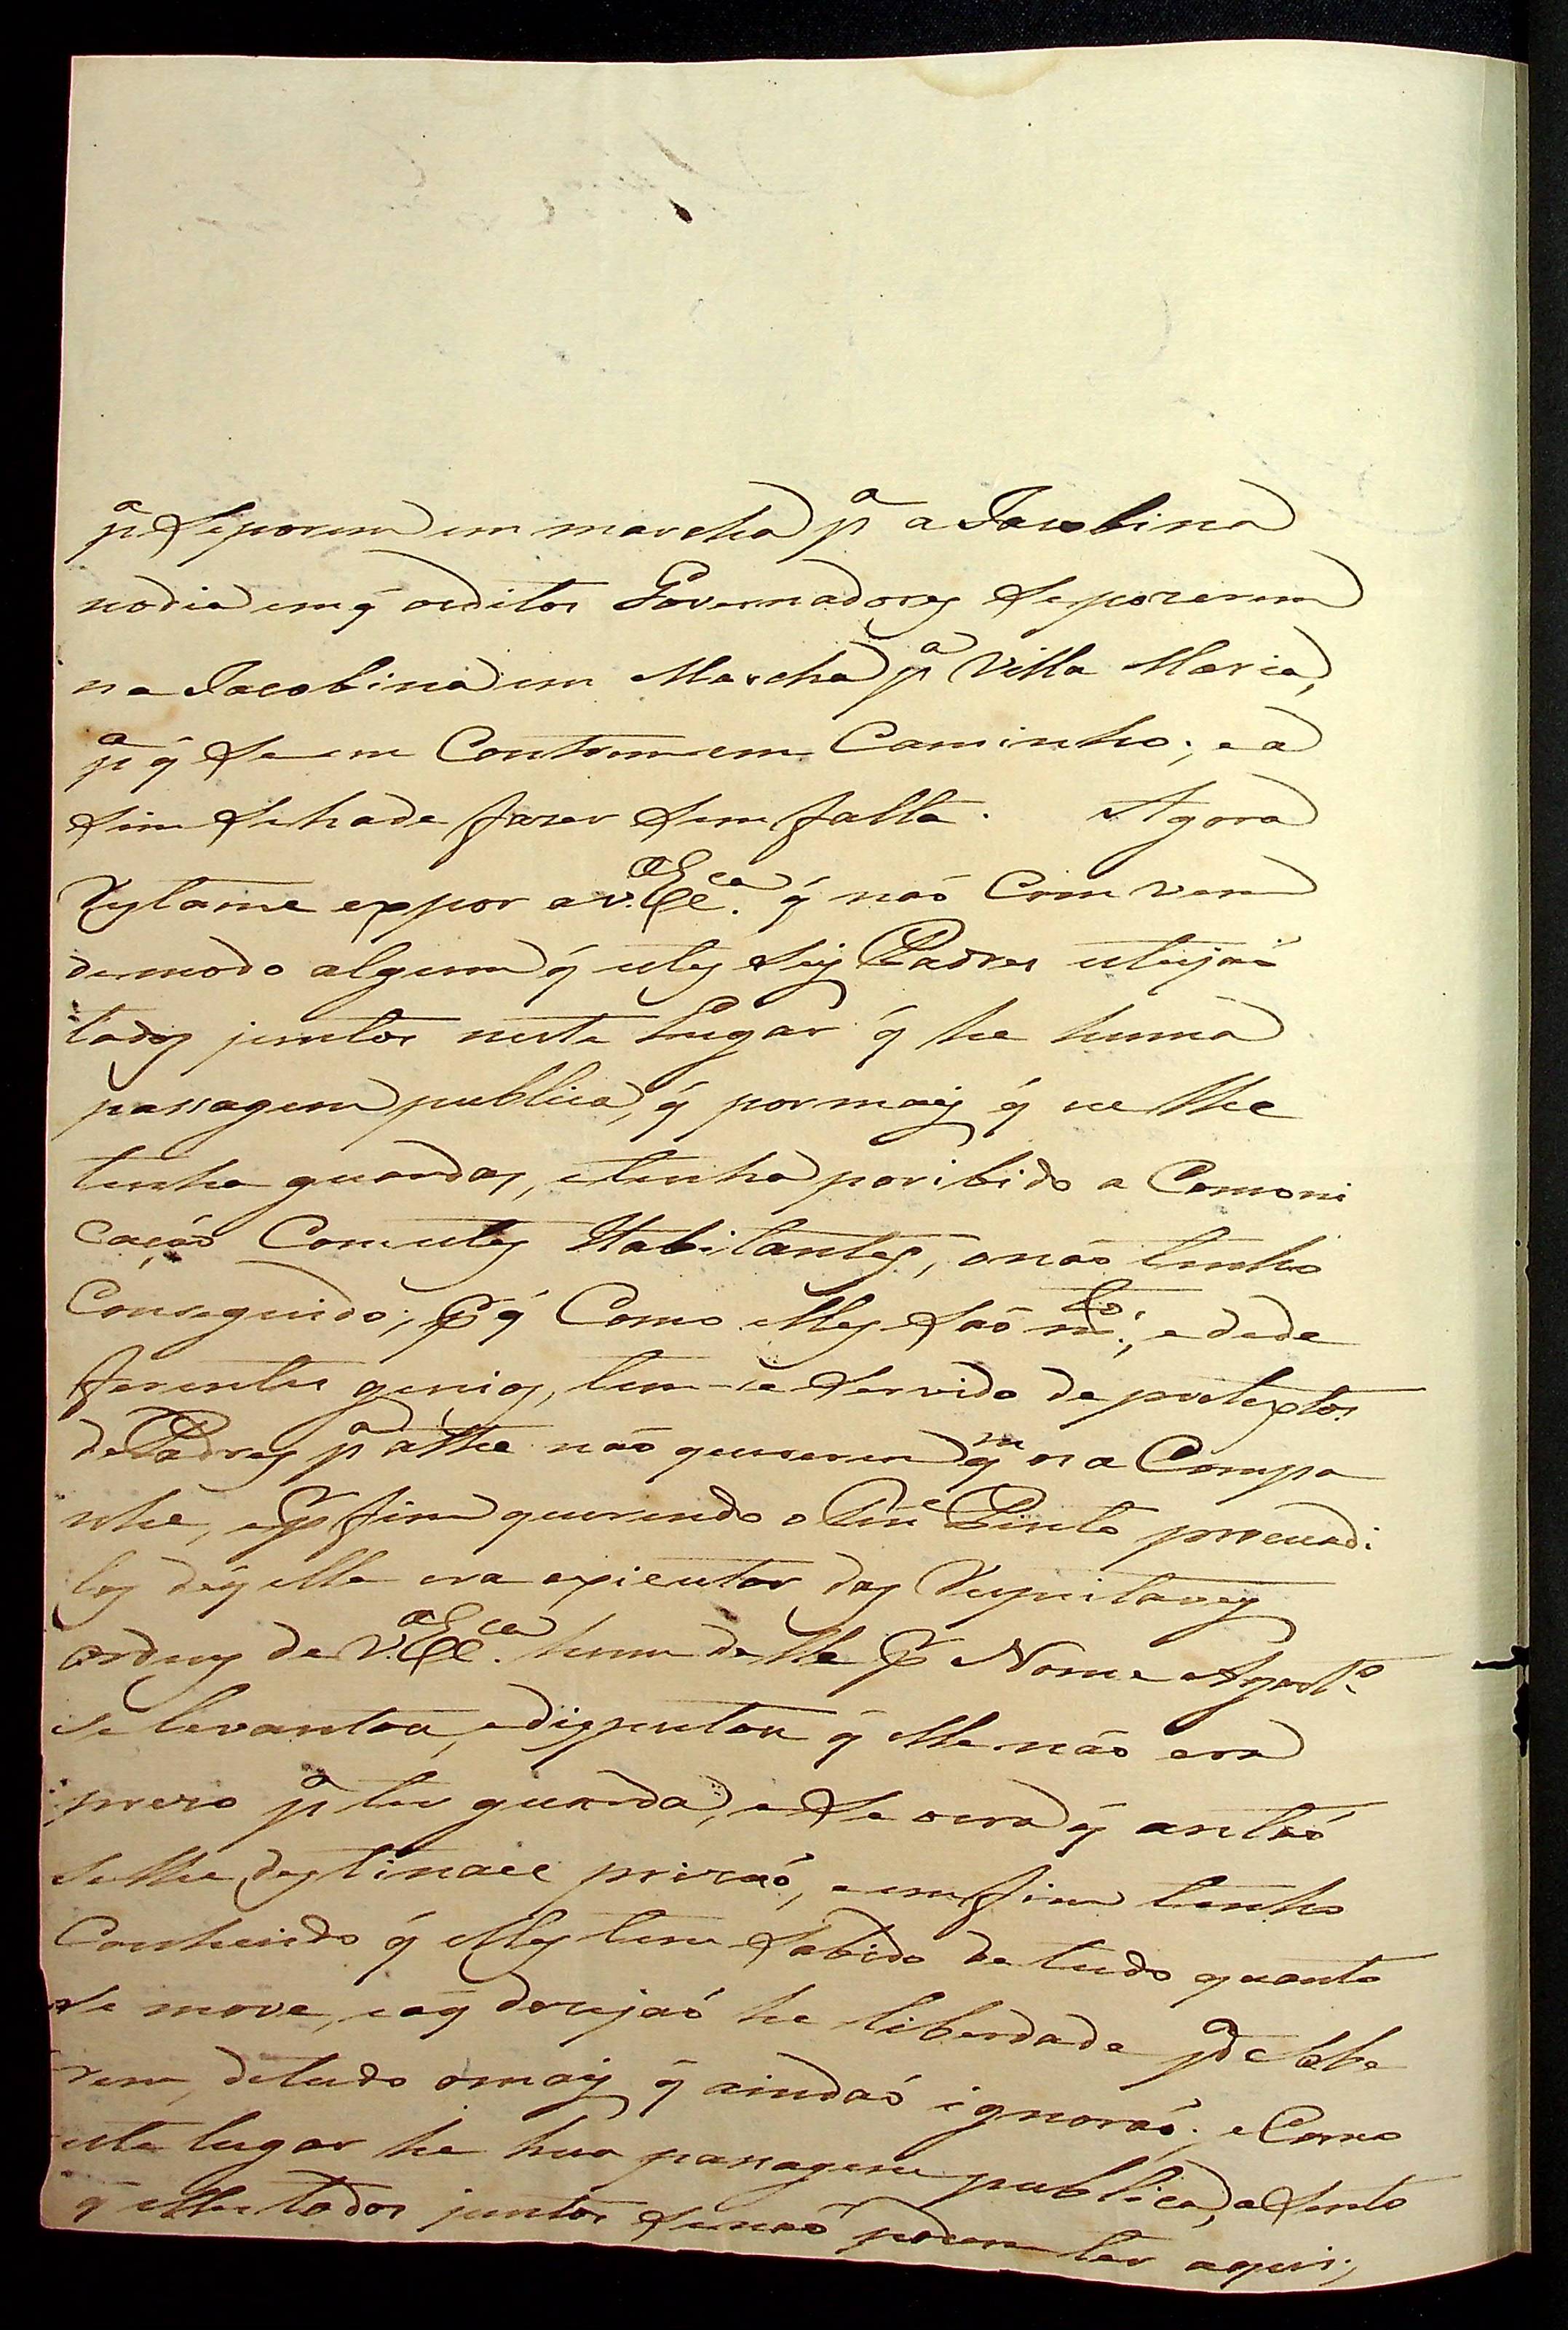 pª Seporem em marcha pª a Jacobina
nodia emq̃ osditos Governadores Seporerem
na Jacobina em Marcha pª Villa Maria,
pª q̃ Se em Contrem em Caminho; e a
Sim Sehade fazer Sem falta. Agora
Restame expor a V. Exª. q̃ naõ Comvem
demodo algum q̃ estes Seis Padres estejaõ
todos juntos neste Lugar q̃ he huma
passagem publica, q̃ pormais q̃ se lhe
tenha guardas, etenha poribido a Comoni
caçaõ Comestes Habitantes, onaõ tenho
Conseguido; p̃ q̃ Como elles Saõ mtos; e dede
ferentes genios, tem-se Servido de pretextos
dePadres pª athe naõ quererem qm os a Compa
nhe, e p̃ fim querendo o Tene Pinto persuadi
los deq̃ elle era exicutor das Respeitaveis
ordens de V. Exª. hum delle p̃ Nome Agostº
se levantou, edisputou q̃ elle naõ era
prezo pª ter guarda, eSe oera q̃ antaõ
Selhe destinace prizaõ, e emfim tenho
Conhecido q̃ elles tem Sabido de tudo quanto
se move, eoq̃ dezejaõ he liberdade pª Sabe
rem detudo omais q̃ aindaõ ignoraõ; e Como
este lugar he hua passagem publica, a Sento
q̃ elles todos juntos Senaõ podem ter aqui;